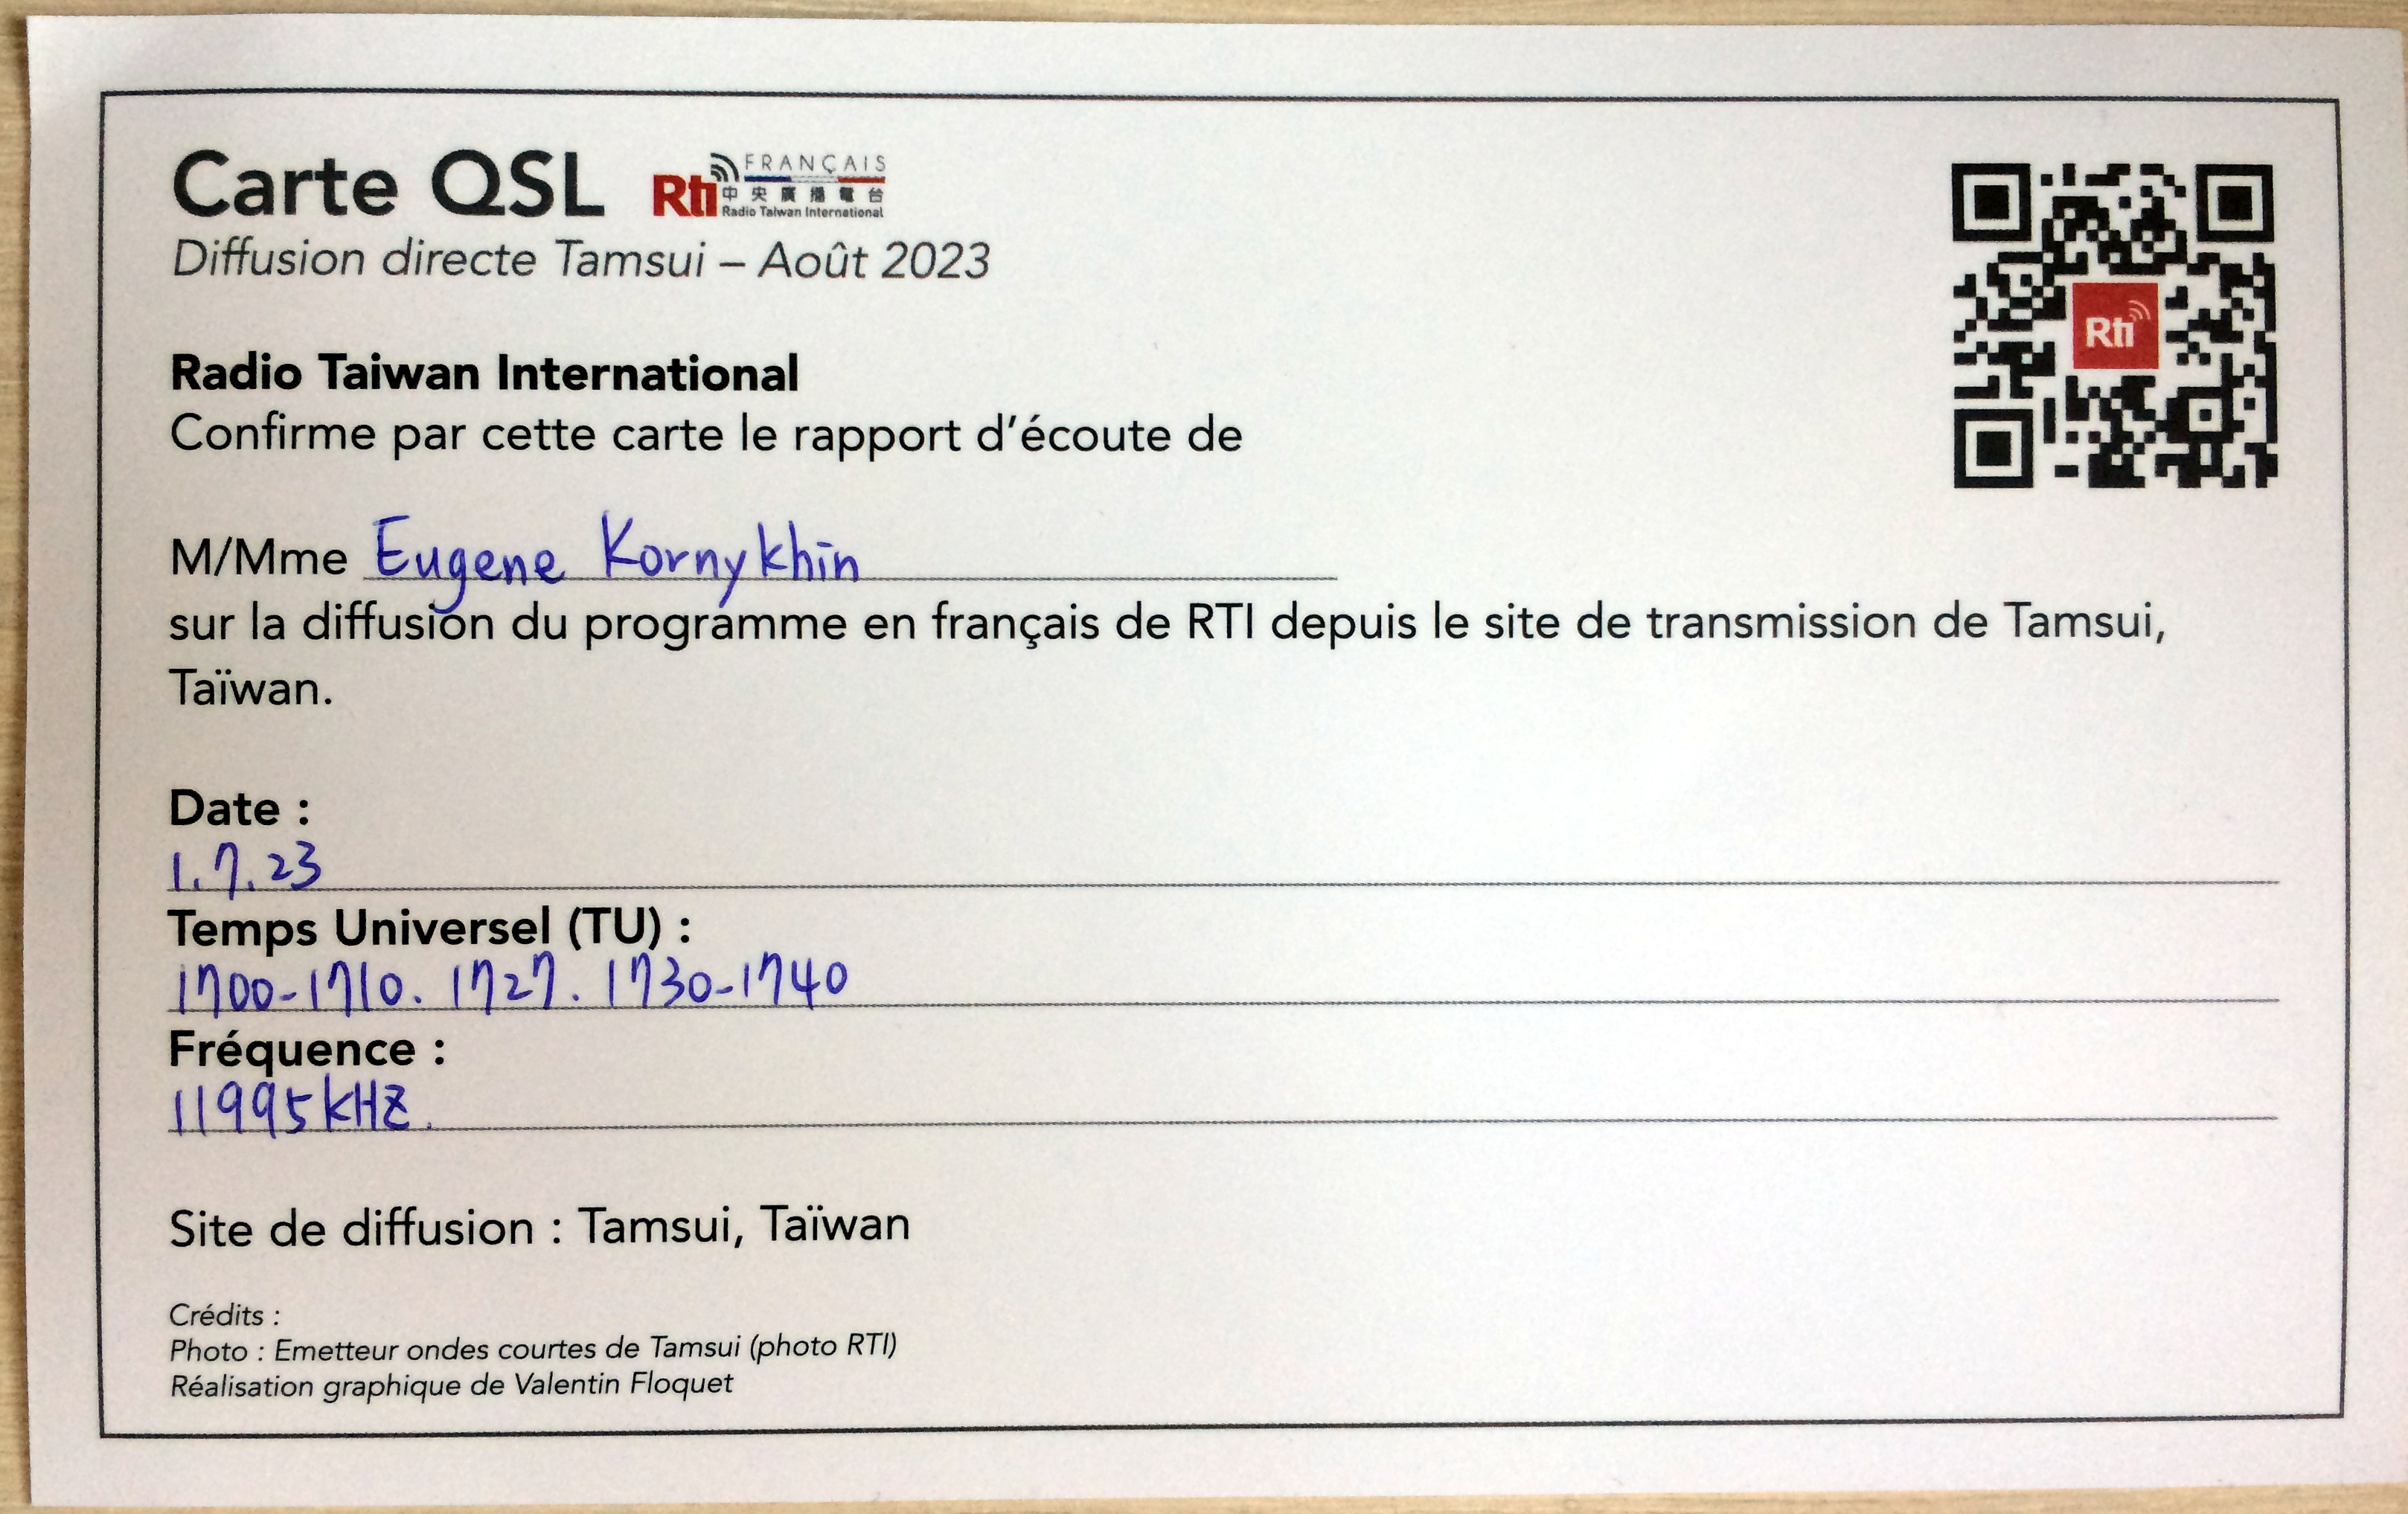 Carte QSL
Rti FRANÇAIS
中央廣播電台
Radio Taiwan International
Diffusion directe Tamsui – Août 2023
Rti
Radio Taiwan International
Confirme par cette carte le rapport d'écoute de
M/Mme Eugene Kornykhin
sur la diffusion du programme en français de RTI depuis le site de transmission de Tamsui,
Taïwan.
Date :
1.7.23
Temps Universel (TU) :
1700-1710. 1727. 1730-1740
Fréquence :
11995kHz.
Site de diffusion : Tamsui, Taïwan
Crédits :
Photo : Emetteur ondes courtes de Tamsui (photo RTI)
Réalisation graphique de Valentin Floquet